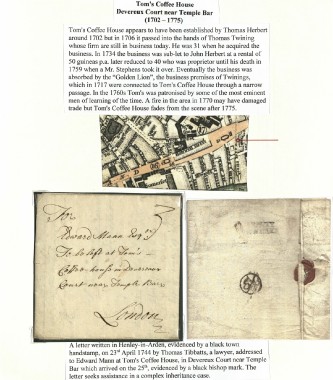 Tom's Coffee House
Devereux Court near Temple Bar
(1702 – 1775)
Tom's Coffee House appears to have been established by Thomas Herbert
around 1702 but in 1706 it passed into the hands of Thomas Twining
whose firm are still in business today. He was 31 when he acquired the
business. In 1734 the business was sub-let to John Herbert at a rental of
50 guineas p.a. later reduced to 40 who was proprietor until his death in
1759 when a Mr. Stephens took it over. Eventually the business was
absorbed by the "Golden Lion", the business promises of Twinings,
which in 1717 were connected to Tom's Coffee House through a narrow
passage. In the 1760s Tom's was patronised by some of the most eminent
men of learning of the time. A fire in the area in 1770 may have damaged
trade but Tom's Coffee House fades from the scene after 1775.
For
Edward Mann Esqr
To be left at Tom's
Coffee-house in Devereux
Court near Temple Barr
London
A letter written in Henley-in-Arden, evidenced by a black town
handstamp, on 23rd April 1744 by Thomas Tibbatts, a lawyer, addressed
to Edward Mann at Tom's Coffee House, in Devereux Court near Temple
Bar which arrived on the 25th, evidenced by a black bishop mark. The
letter seeks assistance in a complex inheritance case.